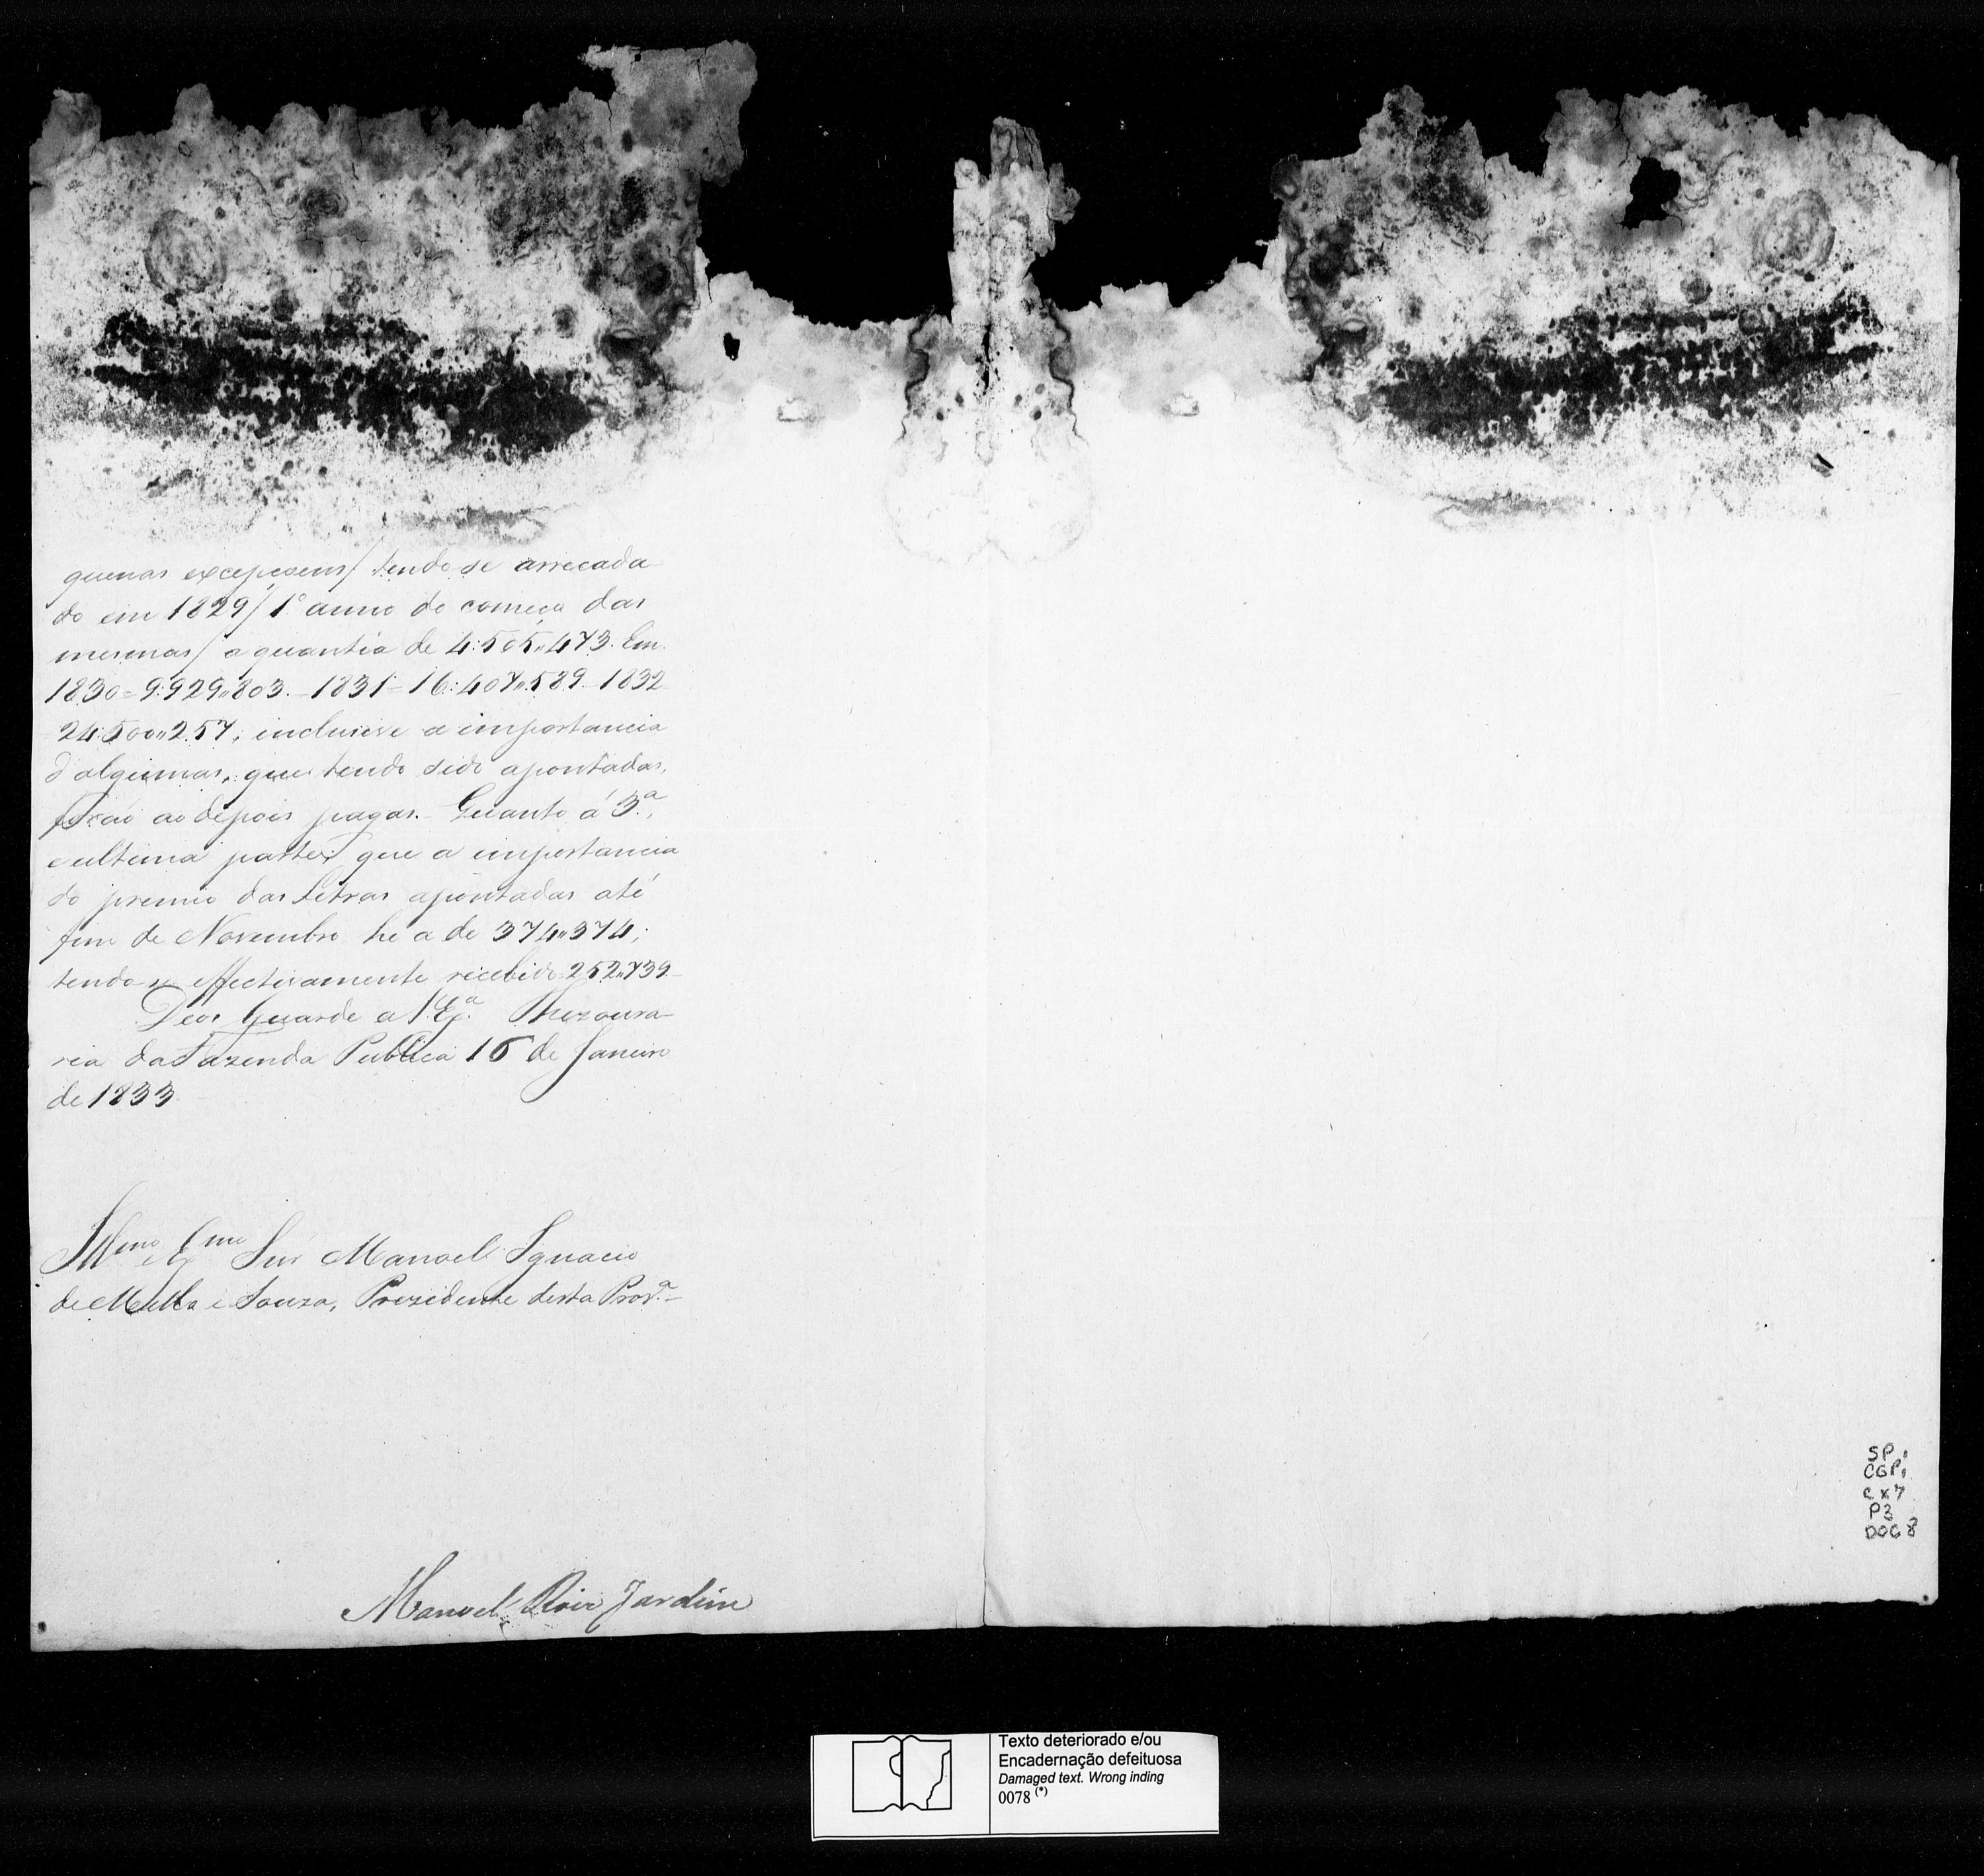 quenas excepçoens/ tendo-se arrecada
do em 1829/1º anno do começo das
mesmas/ a quantia de 4:505,,473. Em
1830=9:929,,803.-1831=16:407,,589-1832
24:500,,257, incluisive a importancia
d'algumas, que tendo sido apontadas,
forão ao depois pagas. Quanto á 3.ª,
e ultima parte, que a importancia
do premio das Letras apontadas até
fim de Novembro he a de 374,,374;
tendo-se effectivamente recebido 252,,739
Deos Guarde a V. Exª. Thezoura
ria da Fazenda Publica 16 de Janeiro
de 1833
Illmo e Exmo Snr Manoel Ignacio
de Mello e Souza, Prezidente desta Prov.ª
Manoel Jardim
SP.
CGP.
CX7
P3
DOC 8
Texto deteriorado e/ou
Encadernação defeituosa
Damaged text. Wrong inding
0078 (*)